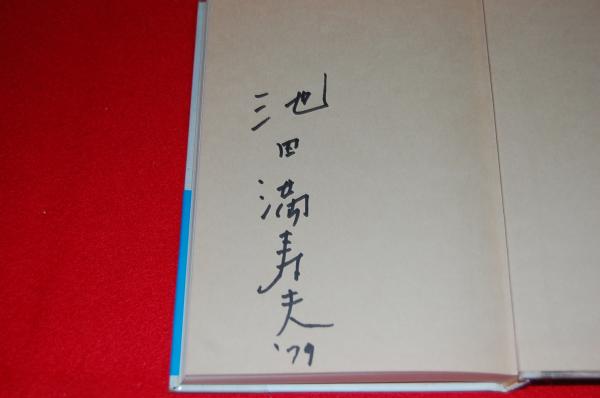 池田満寿夫
'79